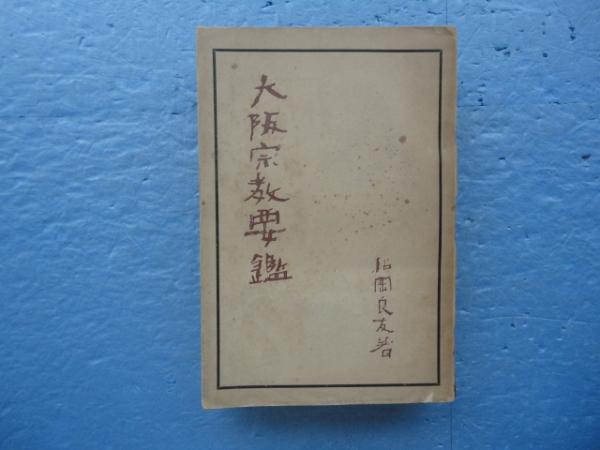 大阪宗教要鑑
松岡良友著